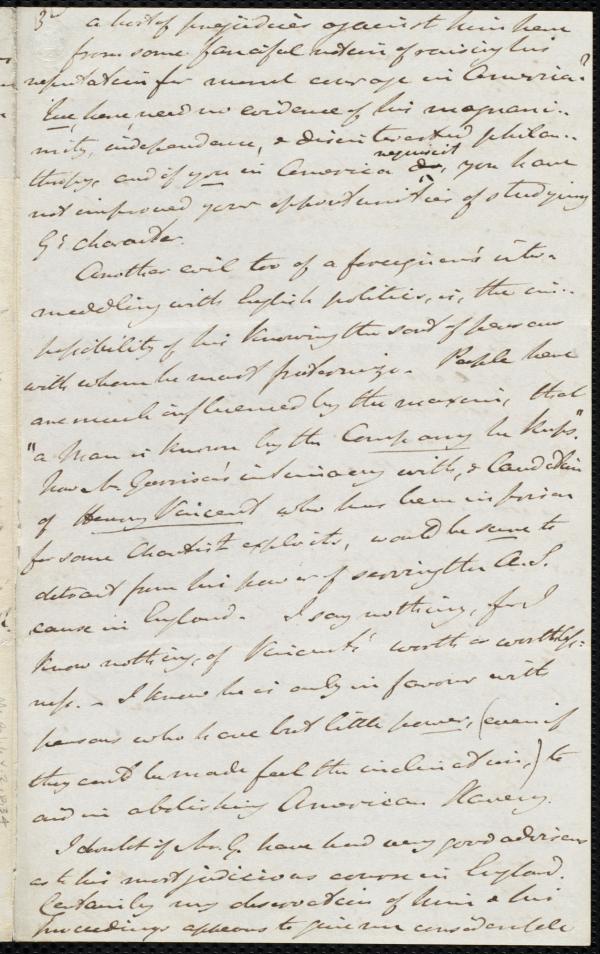 3
a host of prejudices against him here
from some fanciful notion of raising his
reputation for moral courage in America?
We, here, need no evidence of his magnani-
mity, independence, & disinterested philan-
thropy, and if you in America require it, you have
not improved your opportunities of studying
G's character.
Another evil too of a foreigner's inter-
meddling with English politics, is, the im-
possibility of his knowing the sort of persons
with whom he must fraternize. People here
are much influenced by the maxim, that
"a Man is known by the Company he keeps."
Now Mr. Garrison's intimacy with, & laudation
of Henry Vincent who has been in prison
for some Chartist exploits, would be sure to
detract from his power of serving the A.S.
cause in England. I say nothing, for I
know nothing, of Vincents' worth or worthless-
ness. - I know he is only in favour with
persons who have but little power, (even if
they could be made feel the inclination,) to
aid in abolishing American Slavery.
I doubt if Mr. G. have had very good advisers
as to his most judicious course in England.
Certainly my observation of him & his
proceedings appears to give me considerable